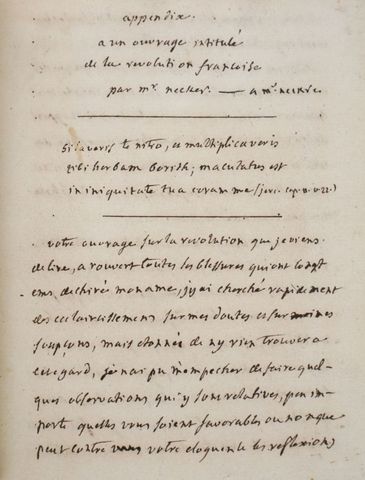 appendix.
a un ouvrage intitulé
de la revolution francoise
par mr. necker. — a mr. necker.
Si laveris te nitro, et multiplicaveris
tibi herbam borith; maculatus est
in iniquitate tua coram me (jere. cap. v. 22.)
votre ouvrage sur la revolution que je viens
de lire, a rouvert toutes les blessures qui ont longt
ems dechiré mon ame, j'y ai cherché rapidement
des ecclaircissements sur mes doutes et sur mes
soupçons, mais etonnée de n'y rien trouver a
cet egard, je n'ai pu m'empecher de faire quel-
ques observations qui y sont relatives, peu im-
porte quelles vous soient favorables ou non que
peut contre votre eloquence les reflexions